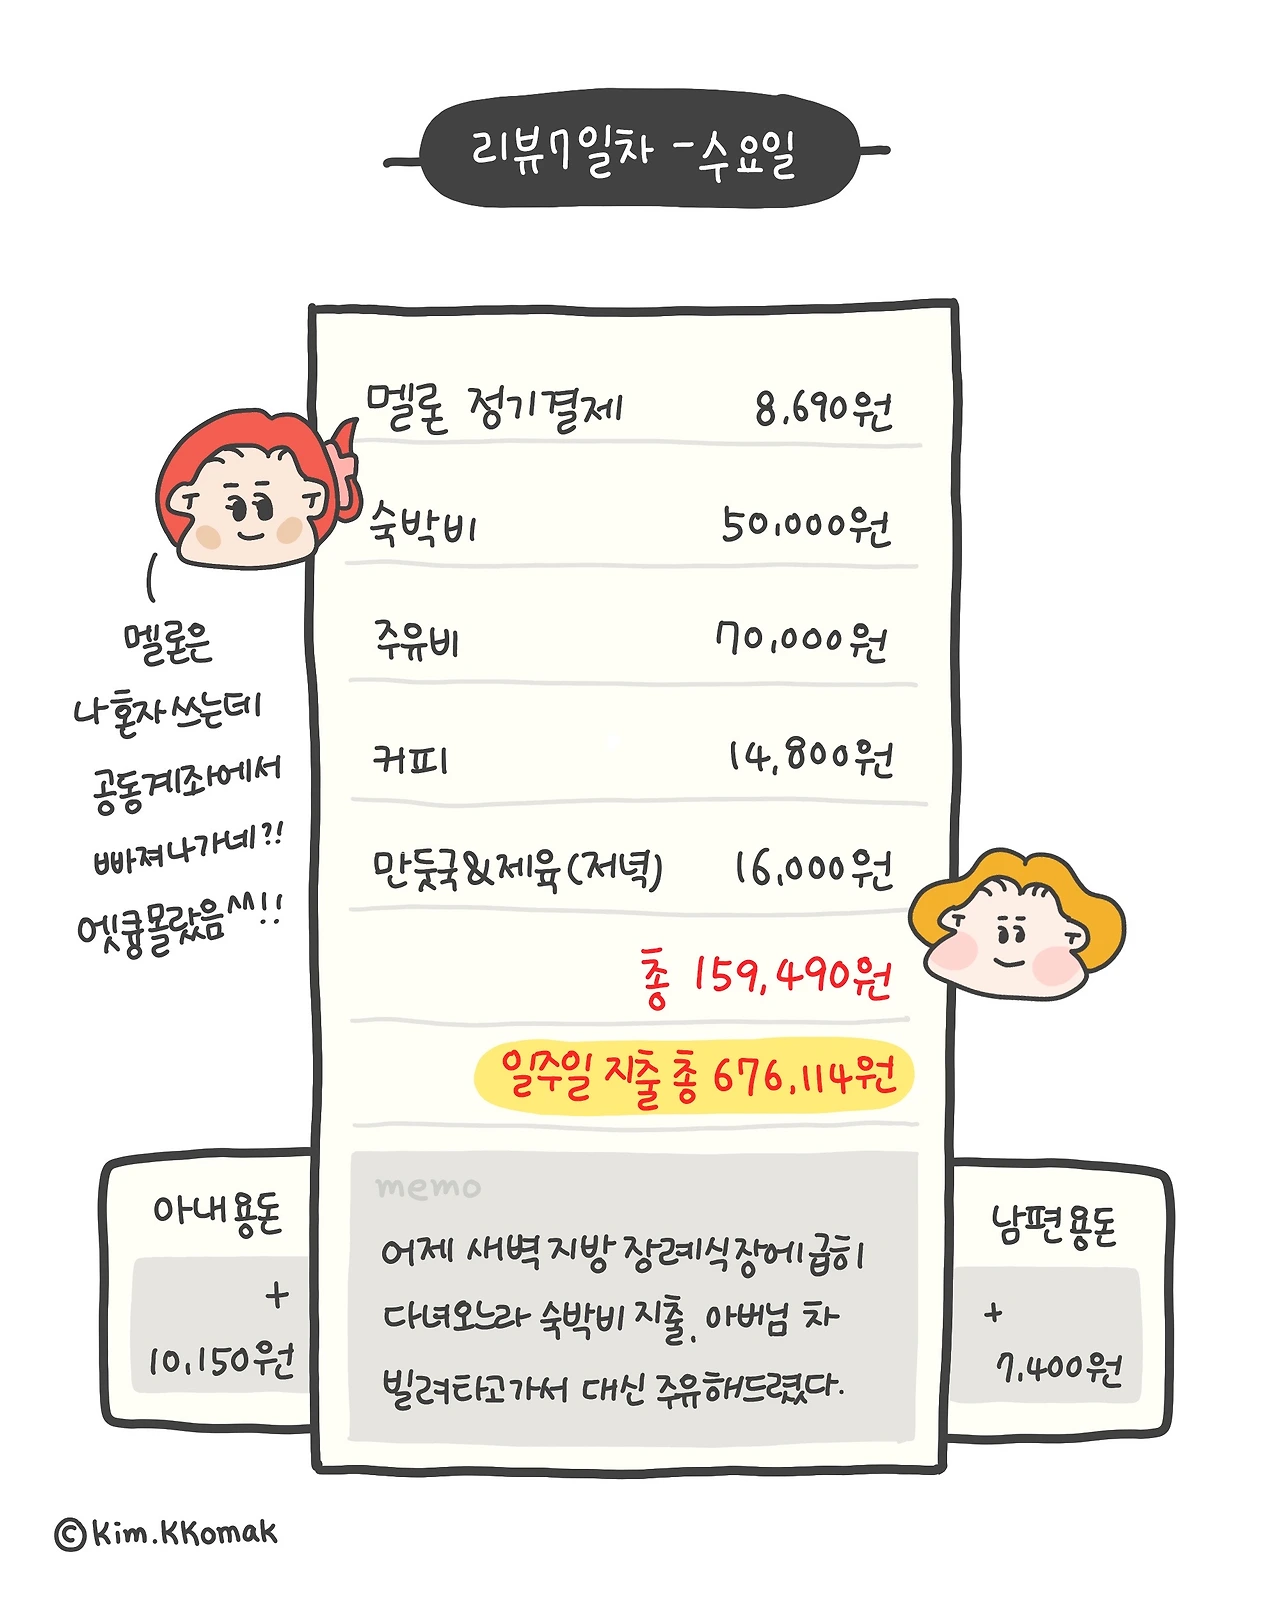 리뷰7일차 - 수요일
멜론 정기결제 8,690원
숙박비 50,000원
주유비 70,000원
커피 14,800원
만둣국&제육(저녁) 16,000원
총 159,490원
일주일 지출 총 676,114원
멜론은
나 혼자 쓰는데
공동계좌에서
빠져나가네?!
엣큥몰랐음^^!!
memo
어제 새벽 지방 장례식장에 급히
다녀오느라 숙박비 지출. 아버님 차
빌려타고가서 대신 주유해드렸다.
아내용돈
+
10,150원
남편용돈
+
7,400원
©Kim.KKomak